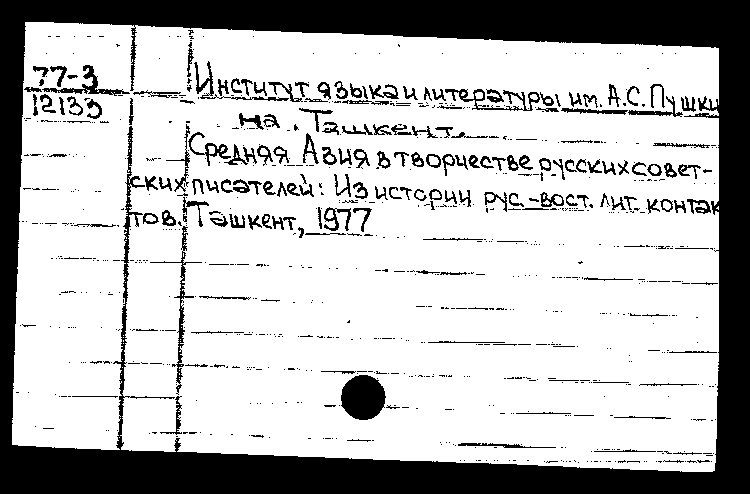 77-3
12133
Институт языка и литературы им. А.С. Пушки
на. Ташкент.
Средняя Азия в творчестве русских совет-
ских писателей: Из истории рус.-вост. лит. контак
тов. Ташкент, 1977